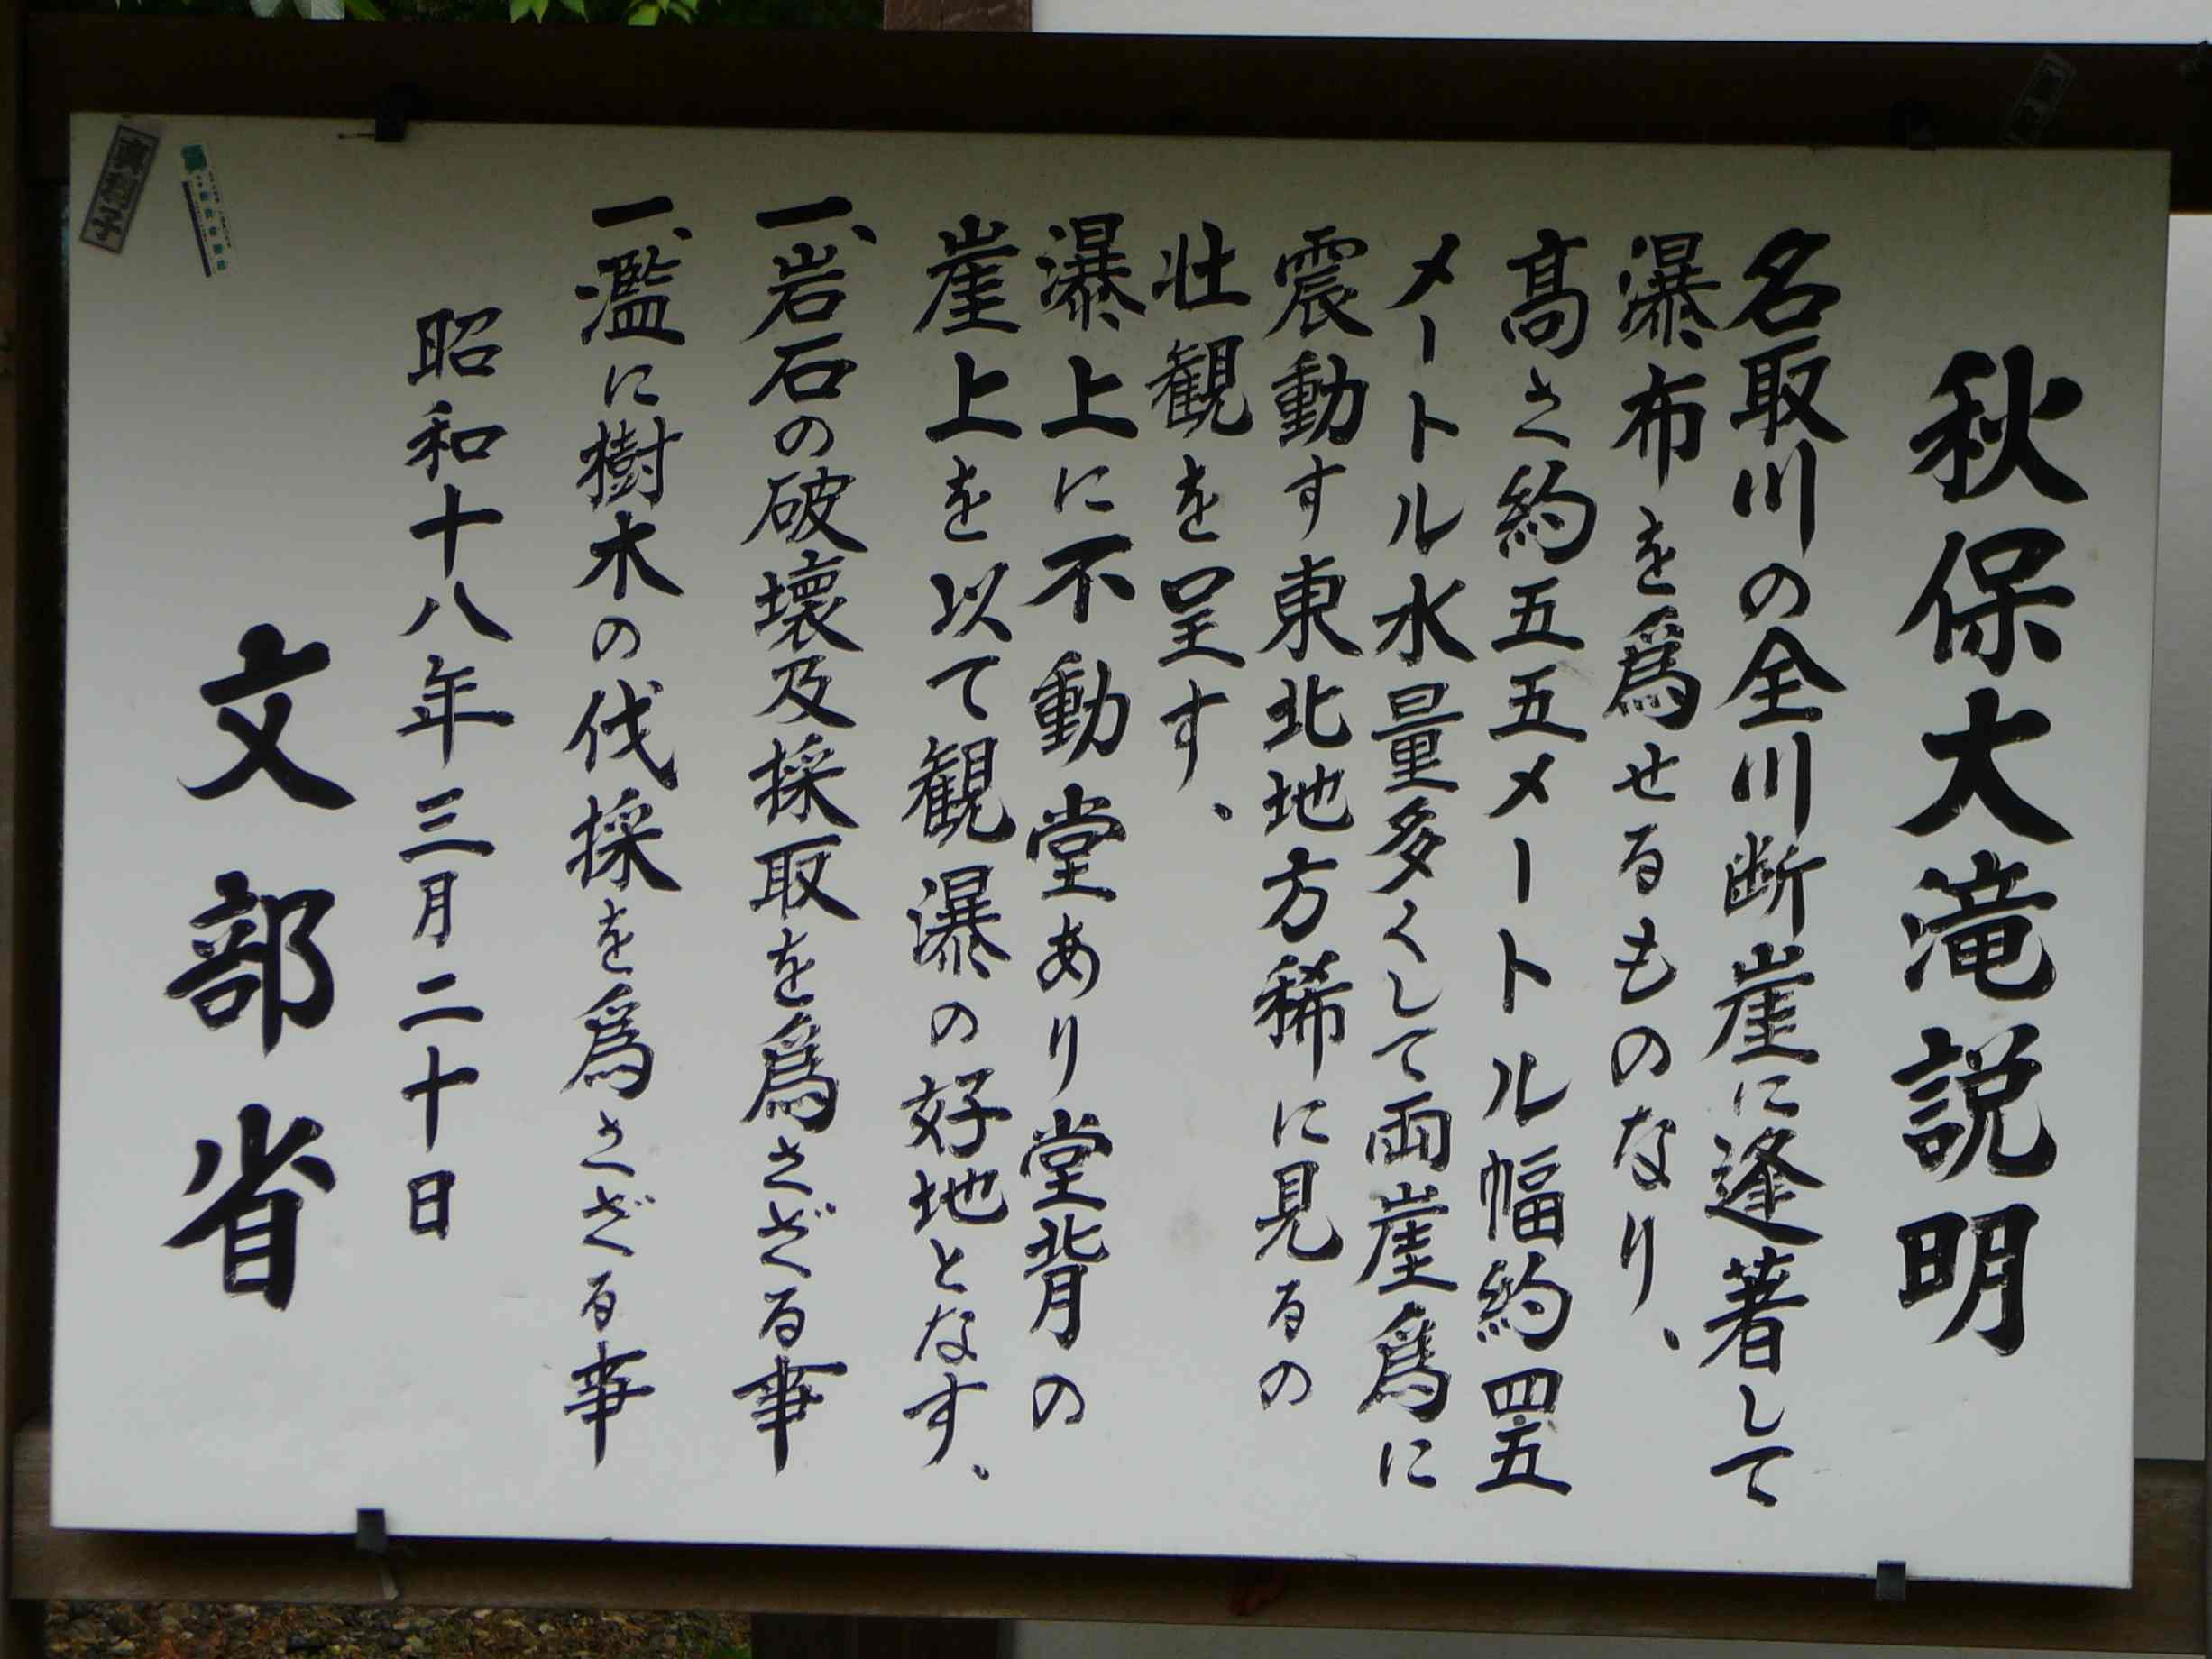 秋保大滝説明
名取川の全川断崖に逢著して
瀑布を爲せるものなり、
髙さ約五五メートル幅約四五
メートル水量多くして両崖爲に
震動す東北地方稀に見るの
壮観を呈す、
瀑上に不動堂あり堂背の
崖上を以て観瀑の好地となす、
一、岩石の破壊及採取を爲さざる事
一、濫に樹木の伐採を爲さざる事
昭和十八年三月二十日
文部省